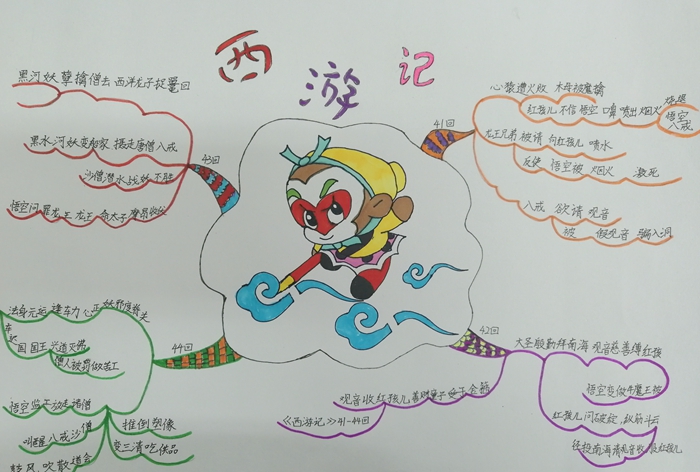 西游记
41回
心猿遭火败 木母被魔擒
红孩儿 不信悟空 喷出烟火
悟空
八戒
龙王兄弟 被请 向红孩儿 喷水
反使 悟空被 烟火
八戒 欲请 观音
被 假观音 骗入洞
42回
大圣殷勤拜南海 观音慈善缚红孩
悟空变做牛魔王被
红孩儿问破绽 纵筋斗云
径投南海请观音收服红孩儿
观音收红孩儿善财童子受了金箍
《西游记》41-44回
43回
黑河妖孽擒僧去 西洋龙子捉鼍回
黑水河妖变船家 掳走唐僧八戒
沙僧潜水战妖不胜
悟空问罪龙王 龙王
44回
法身元运逢车力 心正妖邪度脊关
车迟
国国王 兴道灭佛
僧人被罚做苦工
悟空 监工 放走诸僧
叫醒八戒沙僧
鼓风吹散道会
推倒塑像
变三清吃供品